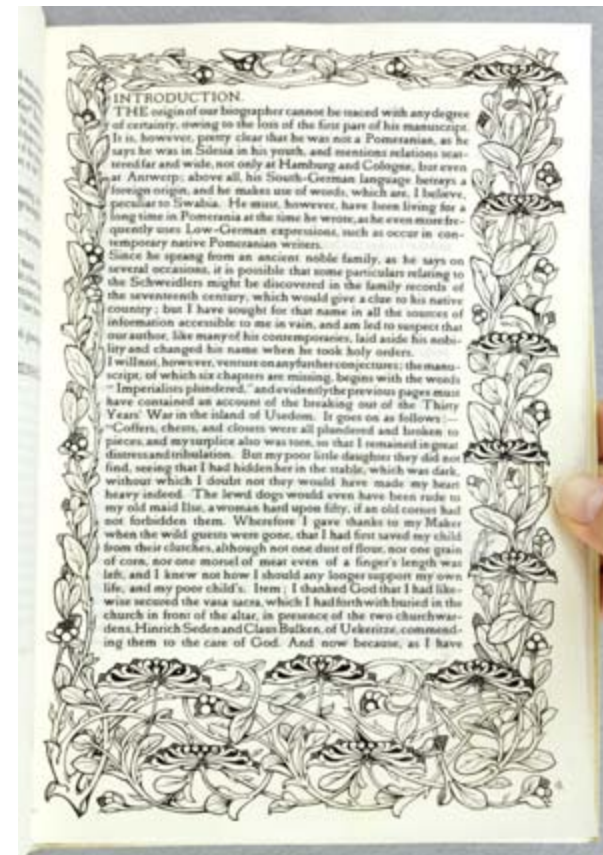 INTRODUCTION.
THE origin of our biographer cannot be traced with any degree
of certainty, owing to the loss of the first part of his manuscript.
It is, however, pretty clear that he was not a Pomeranian, as he
says he was in Silesia in his youth, and mentions relations scat-
tered far and wide, not only at Hamburg and Cologne, but even
at Antwerp; above all, his South-German language betrays a
foreign origin, and he makes use of words, which are, I believe,
peculiar to Swabia. He must, however, have been living for a
long time in Pomerania at the time he wrote, as he even more fre-
quently uses Low-German expressions, such as occur in con-
temporary native Pomeranian writers.
Since he sprang from an ancient noble family, as he says on
several occasions, it is possible that some particulars relating to
the Schweidlers might be discovered in the family records of
the seventeenth century, which would give a clue to his native
country; but I have sought for that name in all the sources of
information accessible to me in vain, and am led to suspect that
our author, like many of his contemporaries, laid aside his nobi-
lity and changed his name when he took holy orders.
I will not, however, venture on any further conjectures; the manu-
script, of which six chapters are missing, begins with the words
"Imperialists plundered," and evidently the previous pages must
have contained an account of the breaking out of the Thirty
Years' War in the island of Usedom. It goes on as follows:—
"Coffers, chests, and closets were all plundered and broken to
pieces, and my surplice also was torn, so that I remained in great
distress and tribulation. But my poor little daughter they did not
find, seeing that I had hidden her in the stable, which was dark,
without which I doubt not they would have made my heart
heavy indeed. The lewd dogs would even have been rude to
my old maid Ilse, a woman hard upon fifty, if an old cornet had
not forbidden them. Wherefore I gave thanks to my Maker
when the wild guests were gone, that I had first saved my child
from their clutches, although not one dust of flour, nor one grain
of corn, nor one morsel of meat even of a finger's length was
left, and I knew not how I should any longer support my own
life, and my poor child's. Item; I thanked God that I had like-
wise secured the vasa sacra, which I had forthwith buried in the
church in front of the altar, in presence of the two churchwar-
dens, Hinrich Seden and Claus Bulken, of Uekeritze, commend-
ing them to the care of God. And now because, as I have